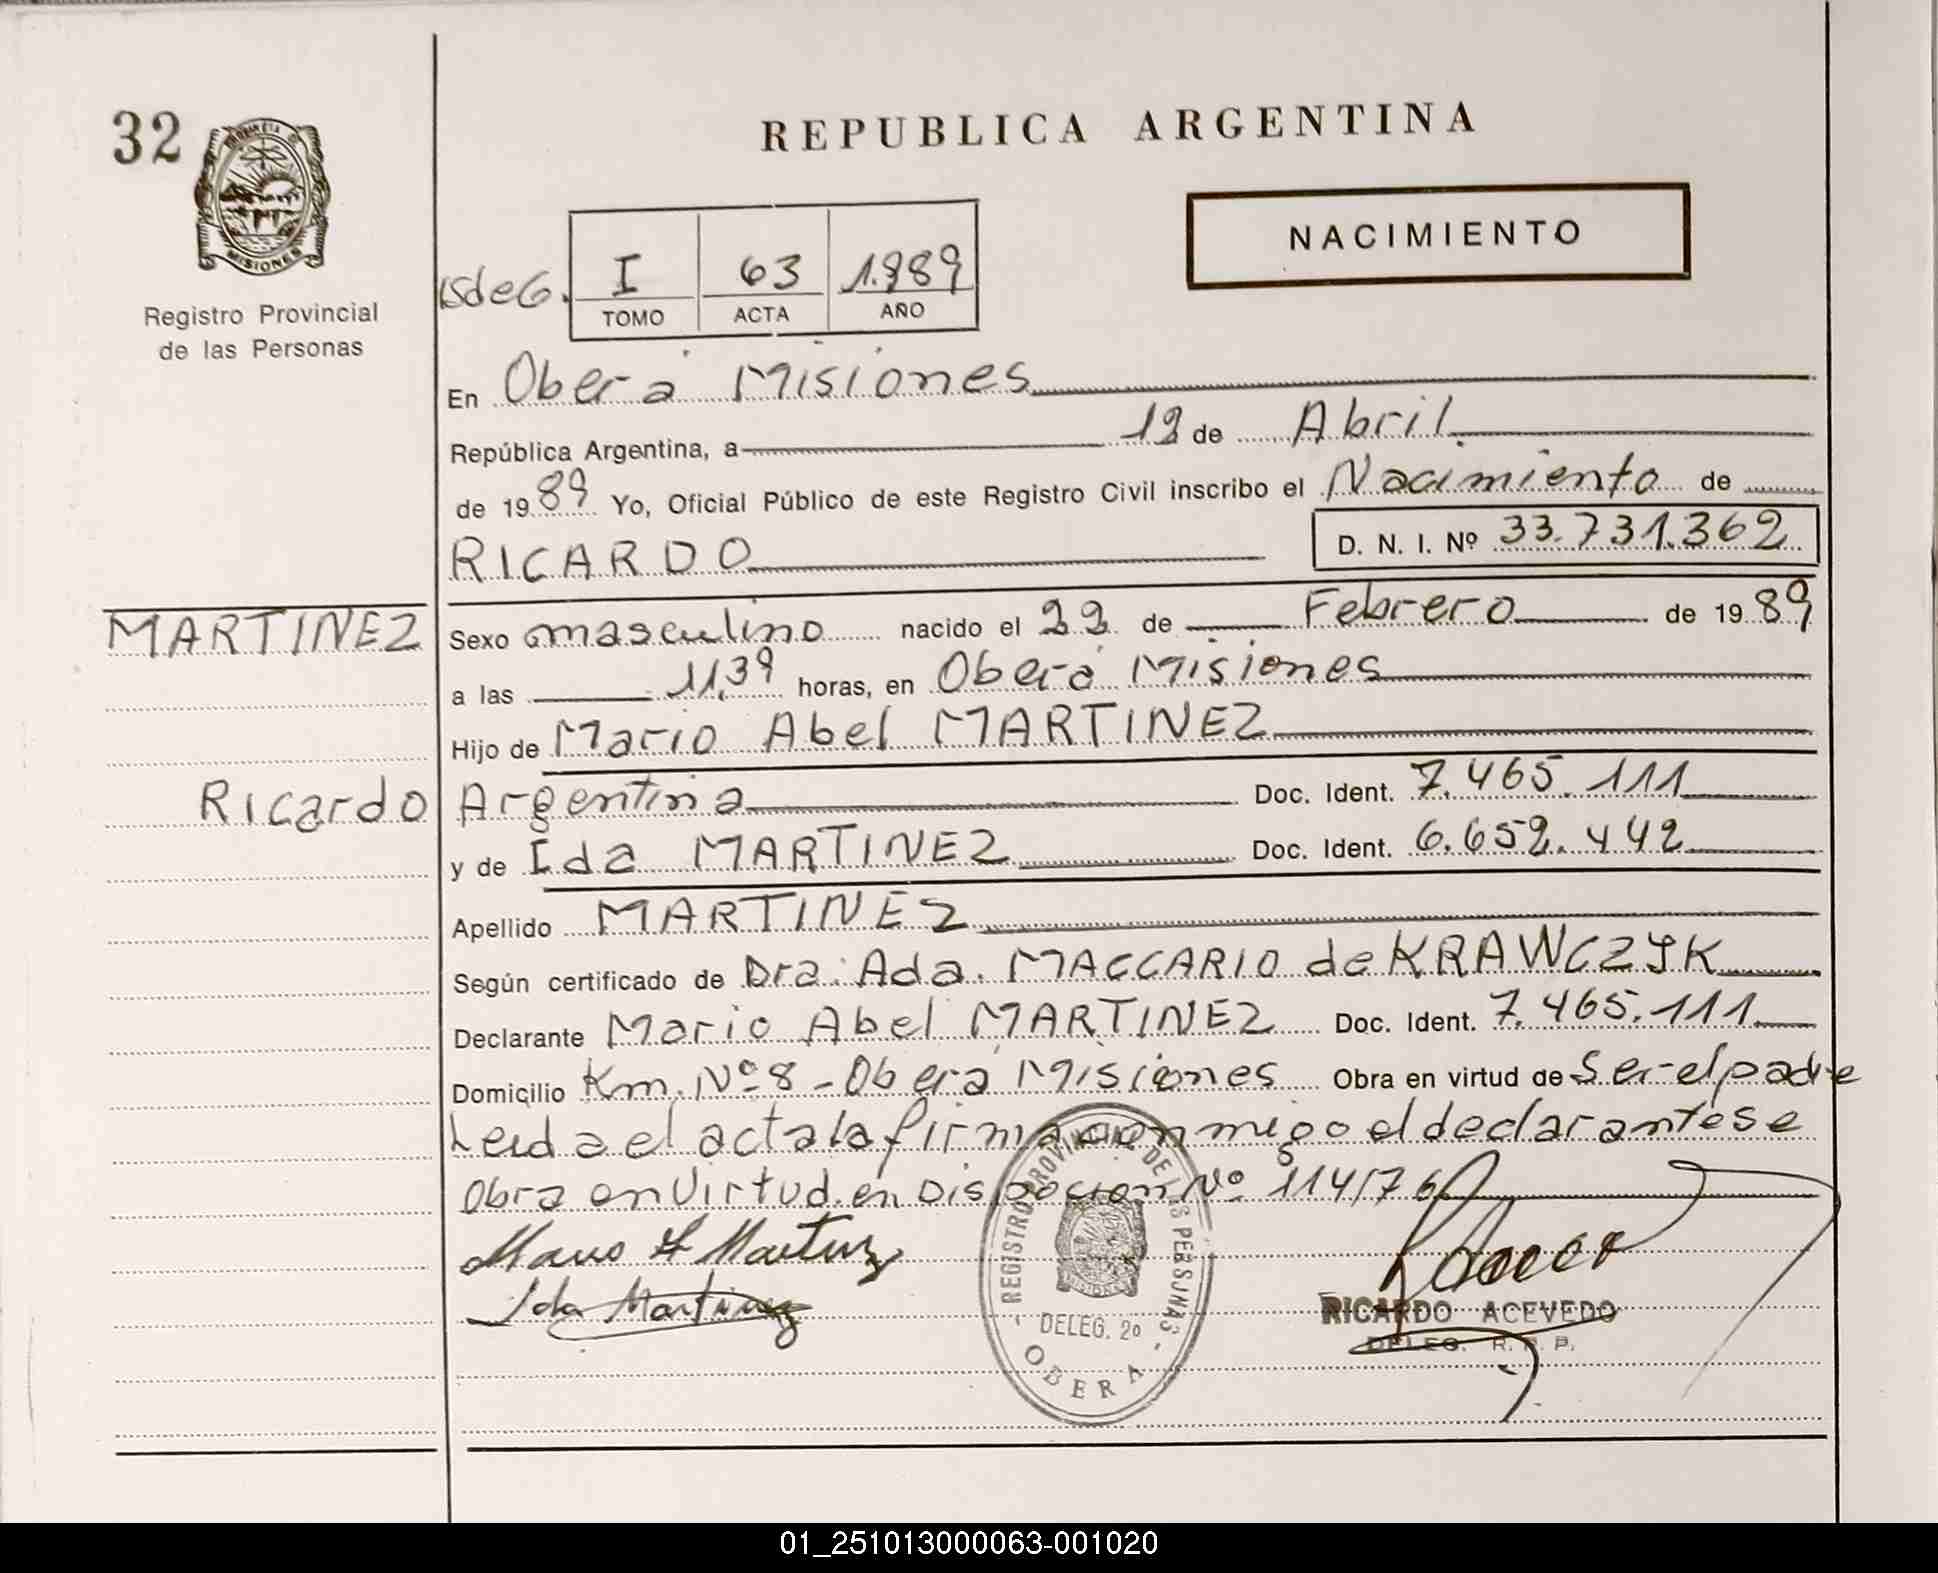 32
MISIONES
Registro Provincial
de las Personas
REPUBLICA ARGENTINA
NACIMIENTO
I 63 1.989
TOMO ACTA AÑO
En Oberá Misiones
República Argentina, a 12 de Abril.
de 1989 Yo, Oficial Público de este Registro Civil inscribo el Nacimiento de
RICARDO D. N. I. Nº 33.731.362
MARTINEZ
Ricardo
Sexo masculino nacido el 22 de Febrero de 1989
a las 11,39 horas, en Oberá Misiones
Hijo de Mario Abel MARTINEZ
Argentina Doc. Ident. 7.465.111
y de Ida MARTINEZ Doc. Ident. 6.652.442
Apellido MARTINEZ
Según certificado de Dra. Ada. MACCARIO de KRAWCZYK
Declarante Mario Abel MARTINEZ Doc. Ident. 7.465.111
Domicilio Km. Nº 8 - Oberá Misiones Obra en virtud de Ser el padre
Leida el acta la firma conmigo el declarante se
obra en virtud en Disposcion Nº 114/76
Mario A Martinez
Ida Martinez
REGISTRO PROVINCIAL DE LAS PERSONAS
DELEG. 2º
OBERA
RICARDO ACEVEDO
DELEG. R. P. P.
01_251013000063-001020